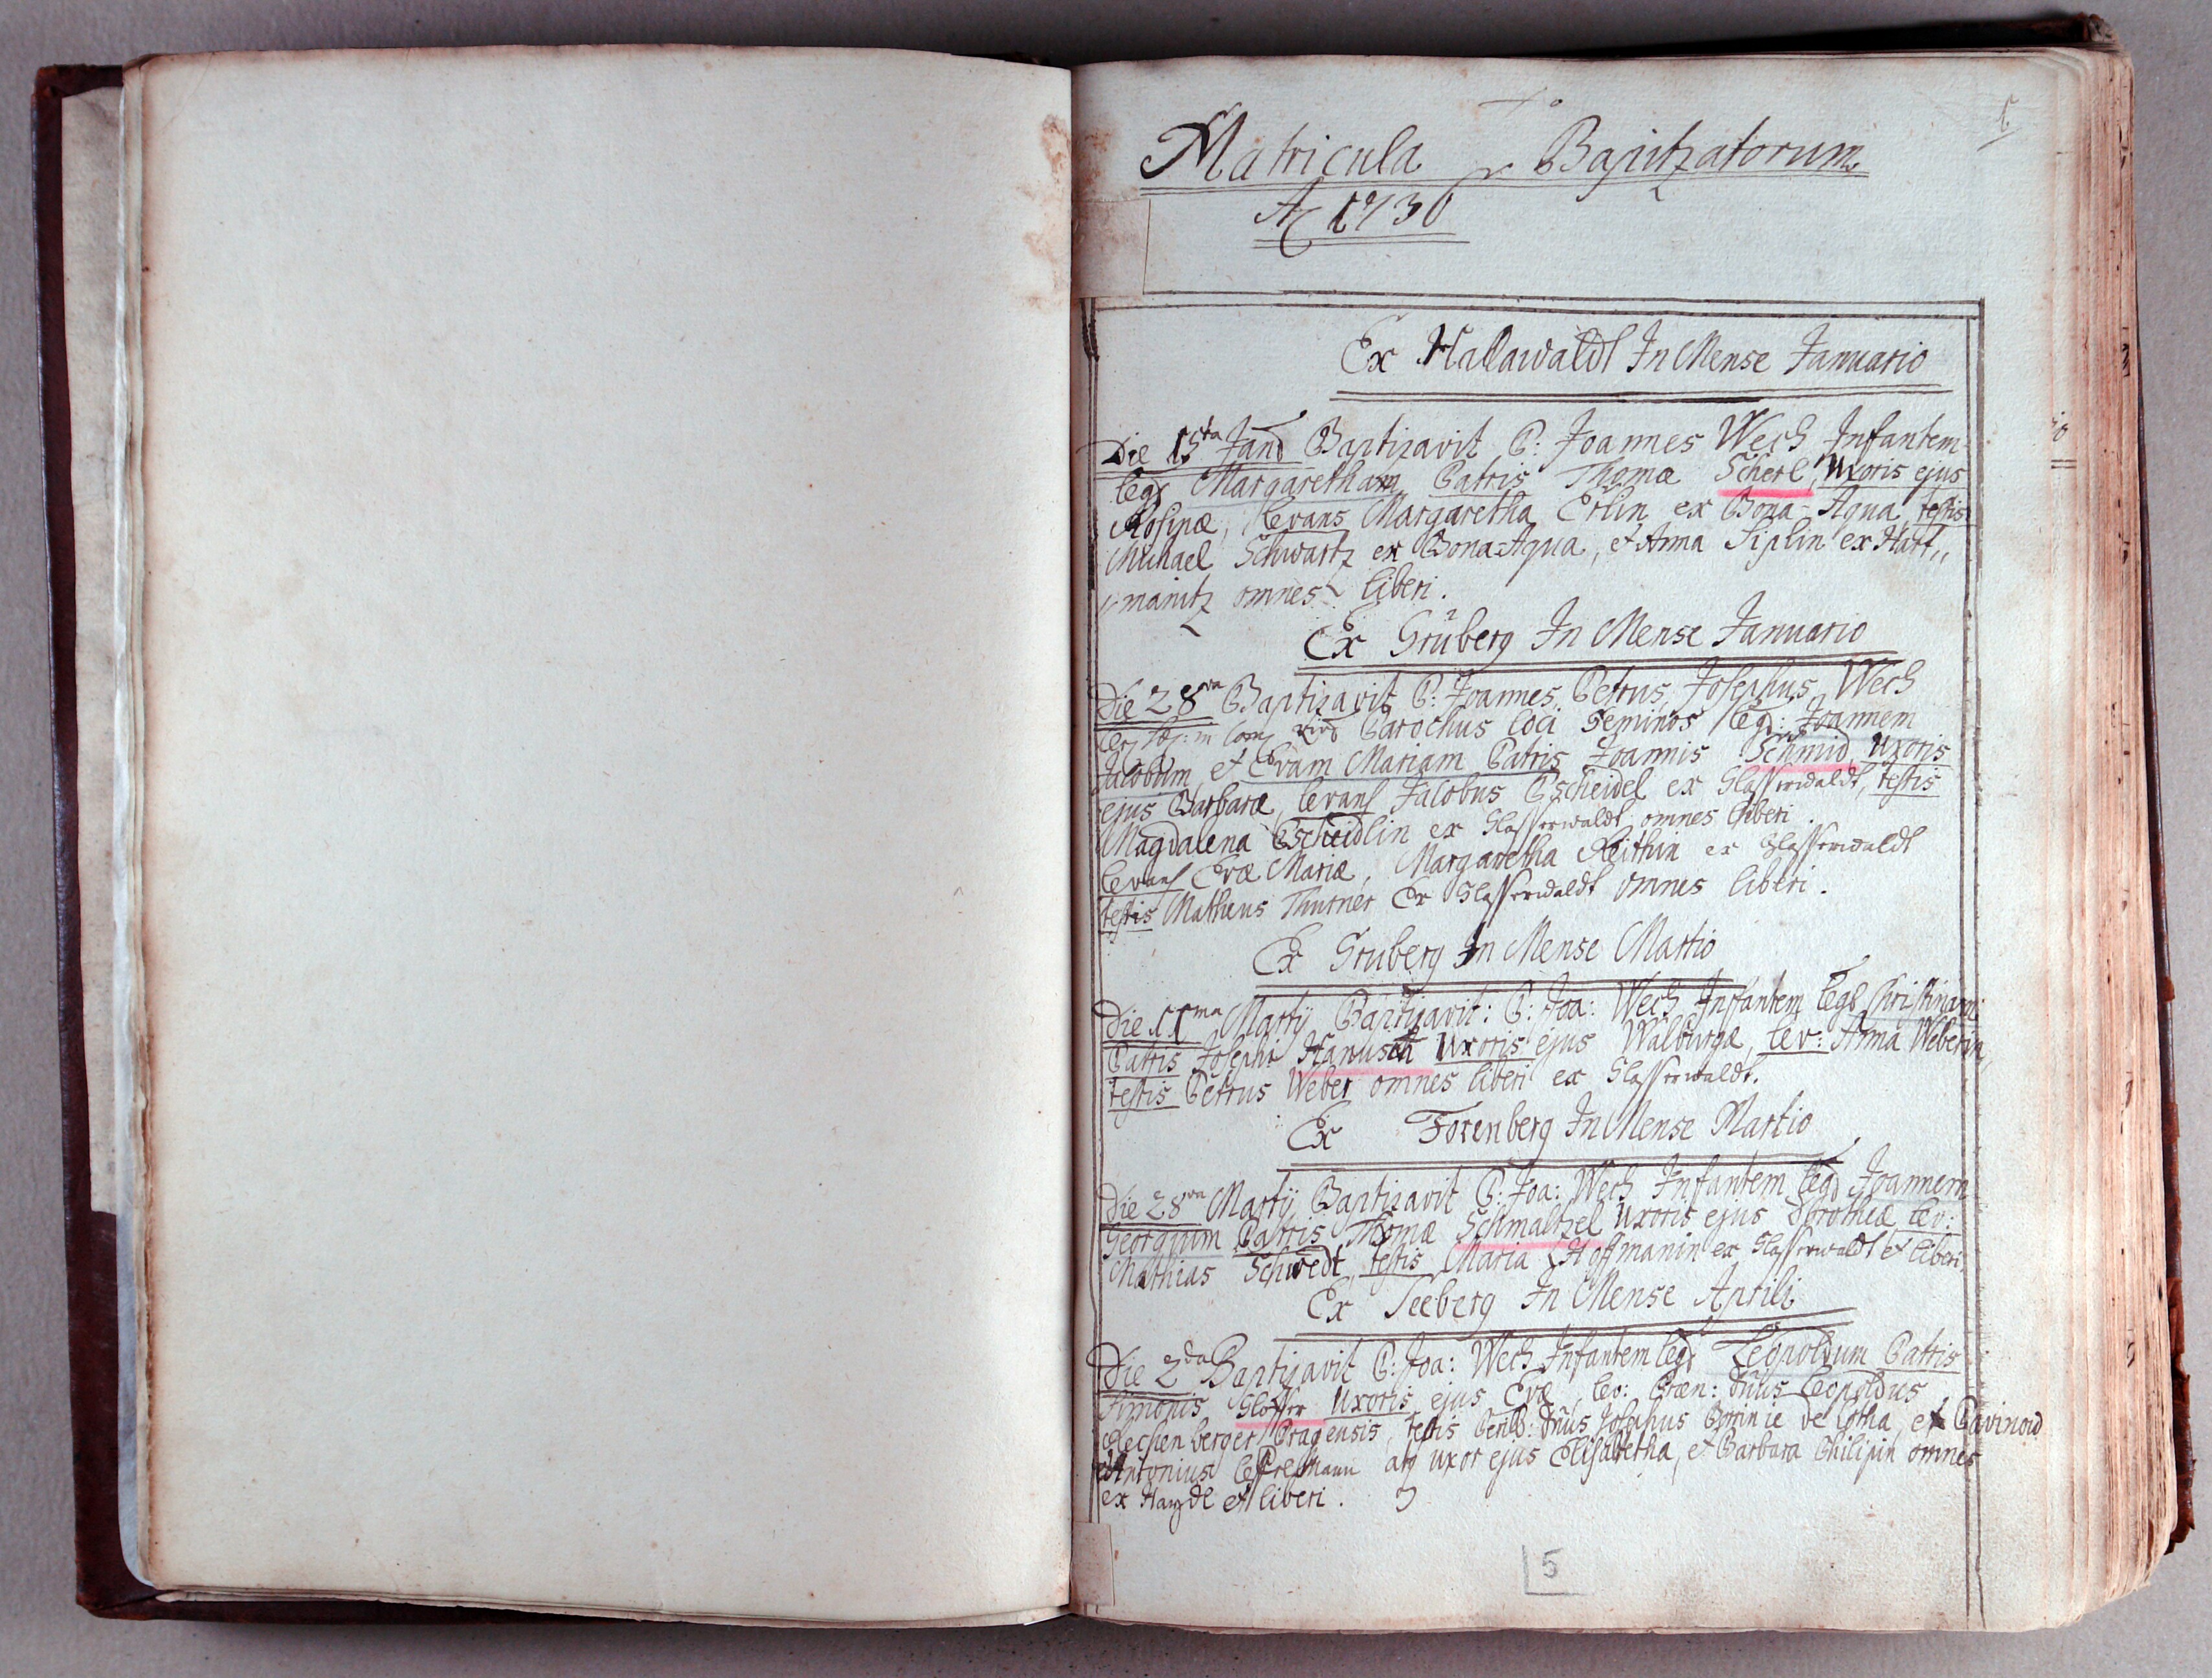 1
Matricula Baptizatorum
Aõ 1730
Ex Hallawaldt In Mense Januario
Die 15ta Janõ Baptizavit P: Joannes Wech Infantem
legs Margaretham Patris Thomæ Scherl, Uxoris ejus
Rosinæ, levans Margaretha Erlin ex Bona-Aqua, testis
Michael Schwartz ex Bona-Aqua, et Anna Siplin ex Hart,,
,,manitz omnes liberi.
Ex Grüberg In Mense Januario
Die 28va Baptizavit P: Joannes Petrus Josephus Wech
Parochus loci Geminos leg: Joannem
Jacobum et Evam Mariam Patris Joannis Schmid, Uxoris
ejus Barbaræ, levans Jacobus Pscheidel ex Glasserwaldt, testis
Magdalena Pscheidlin ex Glasserwaldt omnes liberi.
levans Evæ Mariæ, Margaretha Reithin ex Glasserwaldt
testis Matheus Thurner Ex Glasserwaldt omnes liberi.
Ex Gruberg In Mense Martio
Die 11ma Martij Baptizavit: P: Joa: Wech Infantem legs Christinam
Patris Josephi Hanusch Uxoris ejus Walburgæ, lev: Anna Weberin,
testis Petrus Weber omnes liberi ex Glasserwaldt.
Ex Forenberg In Mense Martio
Die 28va Martij Baptizavit P: Joa: Wech Infantem leg Joannem
Georgium Patris Thomæ Schmaltzel Uxoris ejus Dorotheæ lev:
Mathias Schwedt, testis Maria Hoffmanin ex Glasserwaldt et liberi.
Ex Seeberg In Mense Aprili
Die 2da Baptizavit P: Joa: Wech Infantem legs Leopoldum Patris
Simonis Glosser Uxoris ejus Evæ, lev: Præn: Dñus Leopoldus
Rechenberger Pragensis, testis Dñus Josephus de Lotha, et
Antonius atq uxor ejus Elisabetha, et Barbara Philipin omnes
ex Hayde et liberi.
5